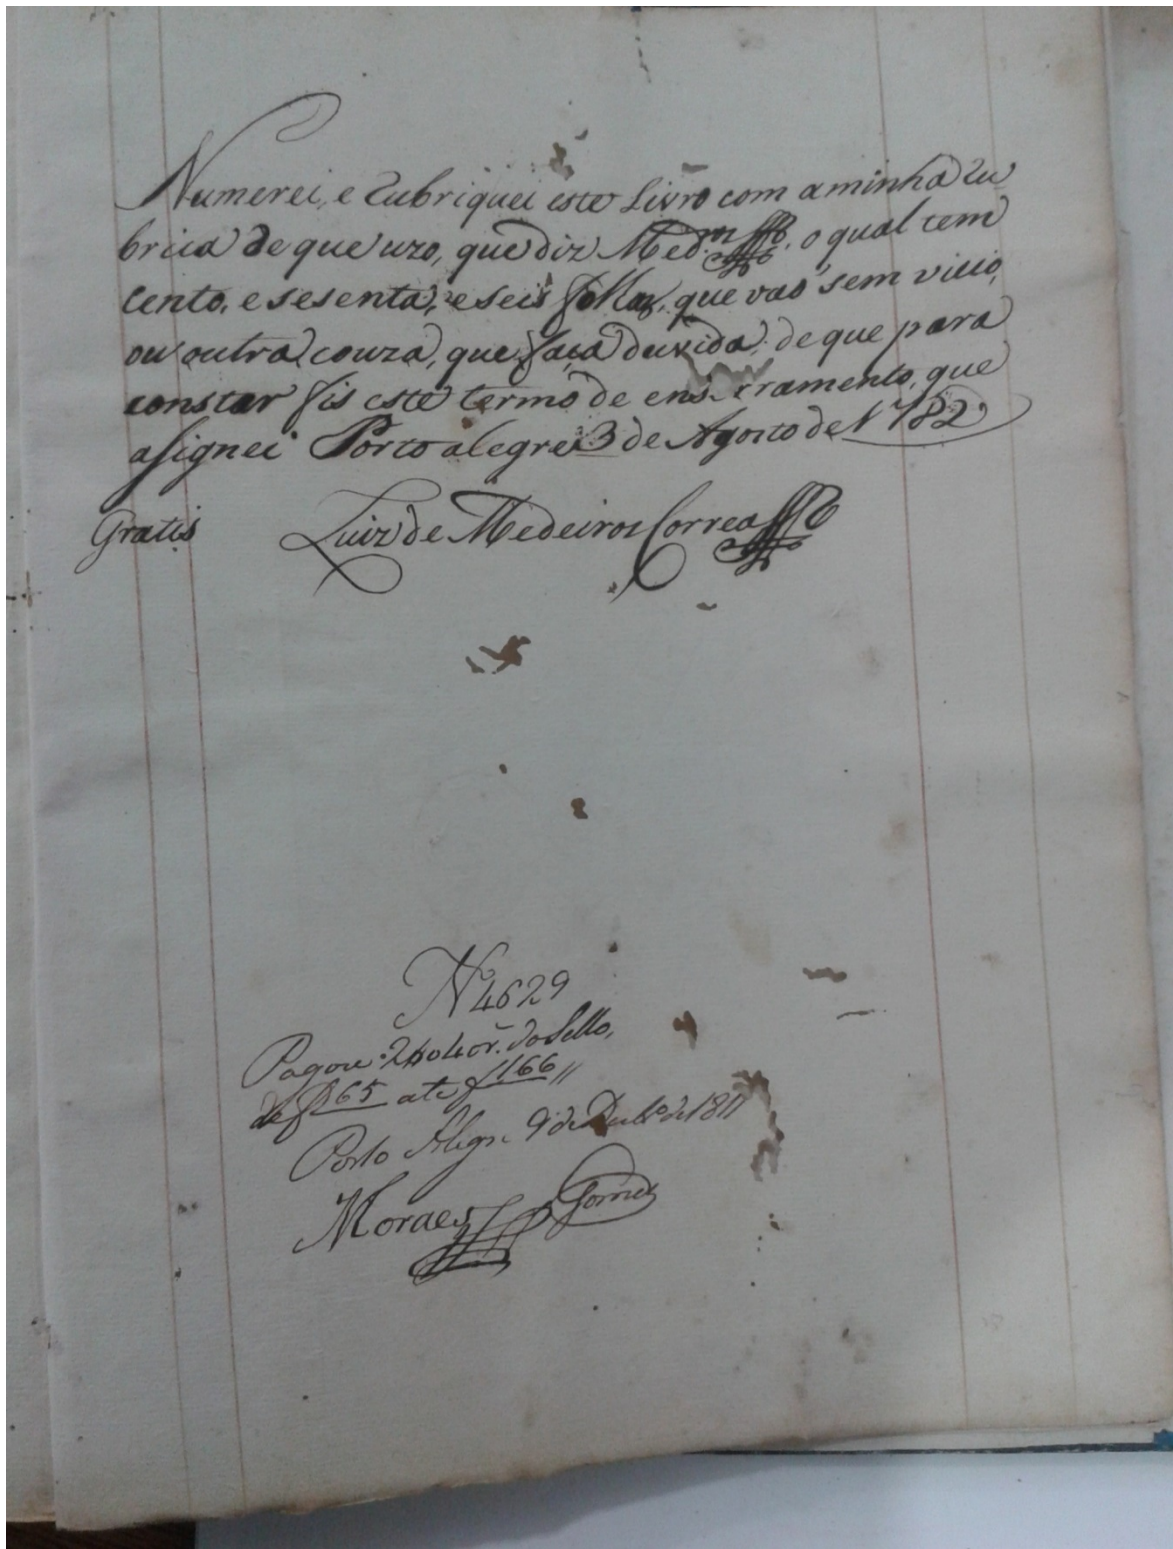 Numerei, e Rubriquei este Livro com aminha Ru
brica de que uzo, que diz Med.ros, o qual tem
cento, e sesenta, e seis folhas, que vaõ sem vicio,
ou outra couza, que faça duvida, de que para
constar fis este termo de enserramento, que
asignei Porto alegre 3 de Agosto de 1782
Gratis Luiz de Medeiros Correa
Nº 4629
Pagou do Sello,
de f 65 ate f 166 //
Porto Alegre 9 de de 1811
Moraes Gomes